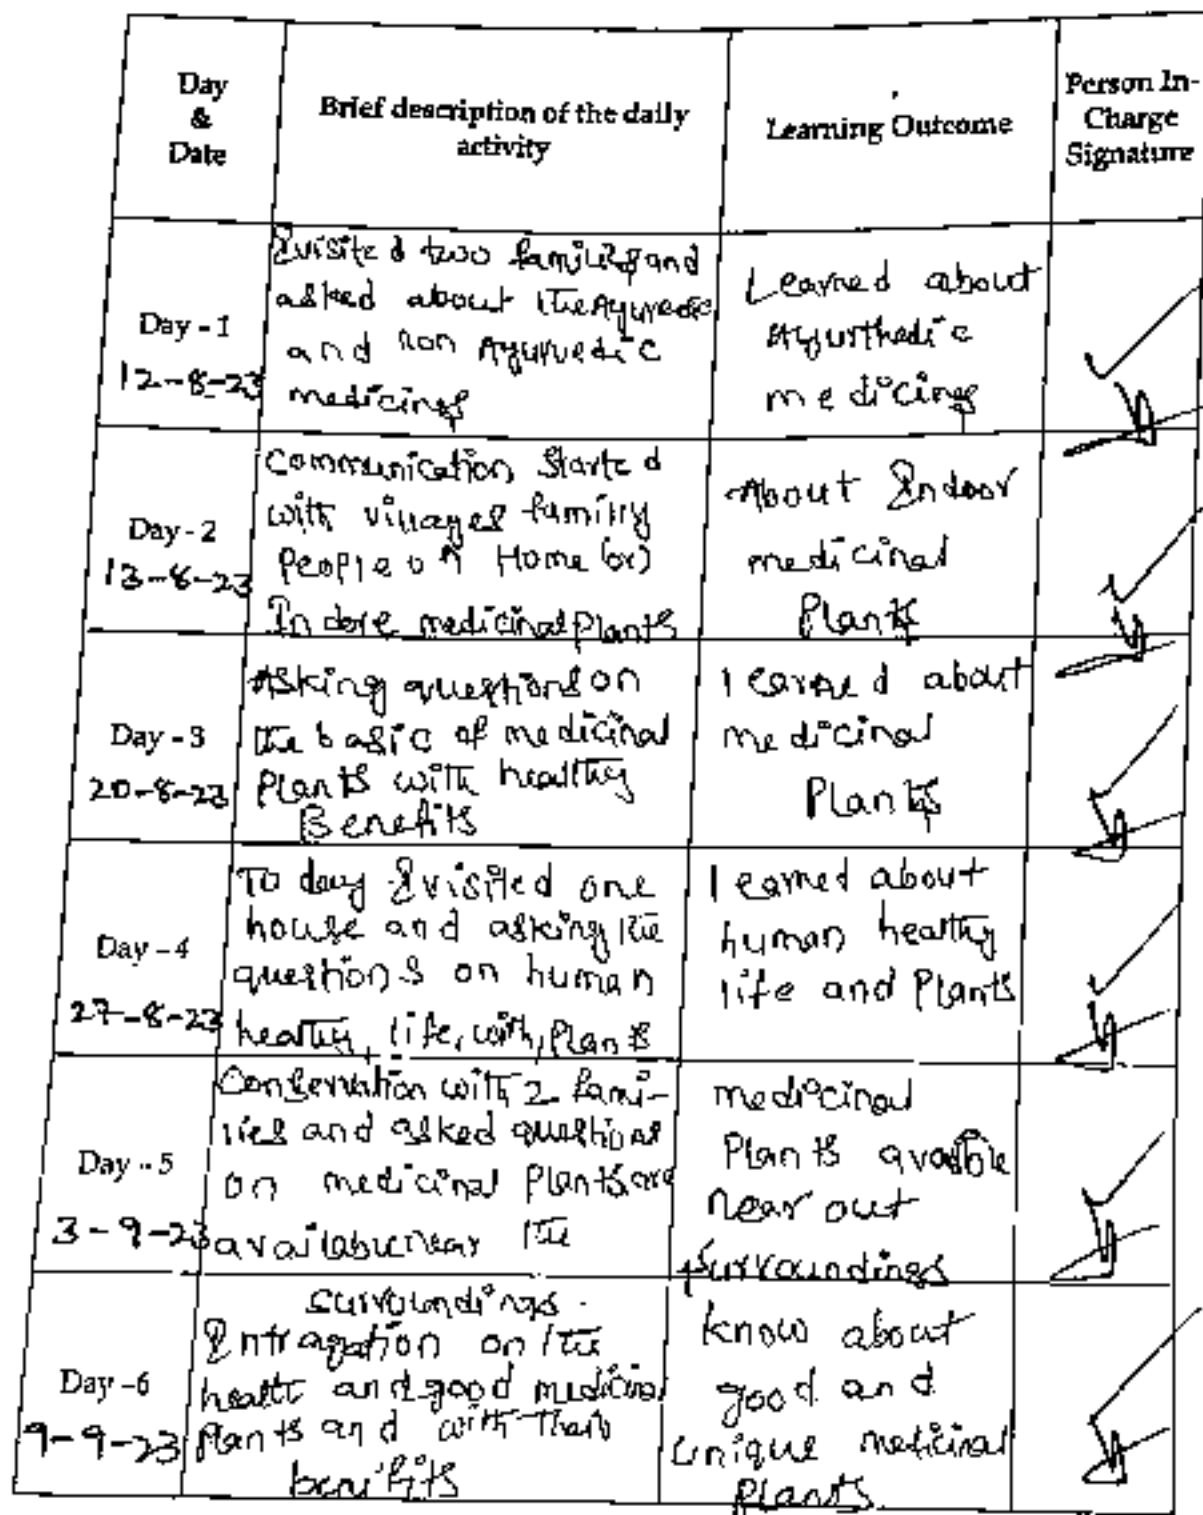 Day
&
Date
Brief description of the daily
activity
Learning Outcome
Person In-
Charge
Signature
Day - 1
12-8-23
I visited two families and
asked about the Ayurvedic
and non Ayurvedic
medicines
Learned about
Ayurthedic
medicines
Day - 2
13-8-23
Communication started
with villages family
People on Home (or)
Indore medicinal plants
About Indoor
medicinal
Plants
Day - 3
20-8-23
Asking questions on
the basic of medicinal
Plants with healthy
Benefits
learned about
medicinal
Plants
Day - 4
27-8-23
To day I visited one
house and asking the
questions on human
healthy life, with, Plants
learned about
human healthy
life and Plants
Day - 5
3-9-23
Conservation with 2 fami-
lies and asked questions
on medicinal Plants are
available near the
medicinal
Plants
near out
surroundings
Day -6
9-9-23
surroundings.
on the
health and good medicinal
Plants and with their
benifits
know about
good and
unique medicinal
plants